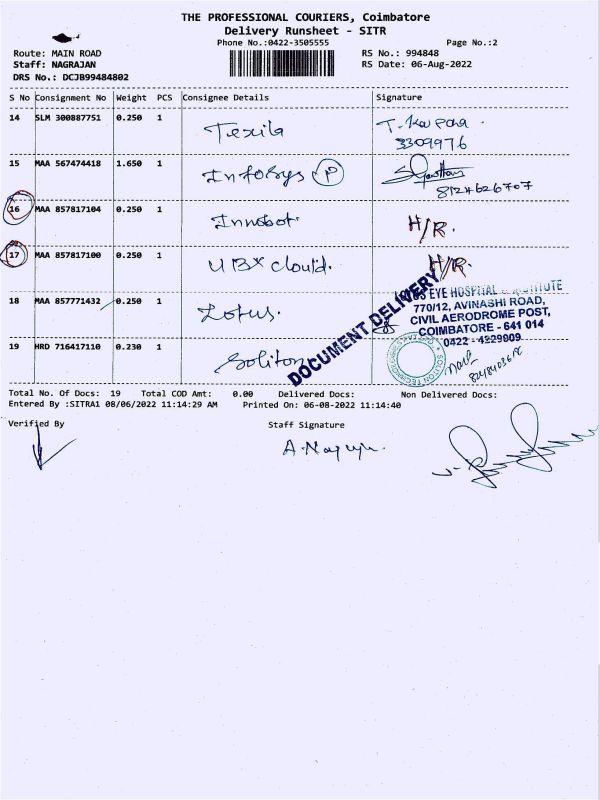 THE PROFESSIONAL COURIERS, Coimbatore
Delivery Runsheet - SITR
Phone No.:0422-3505555 Page No.:2
Route: MAIN ROAD RS No.: 994848
Staff: NAGRAJAN RS Date: 06-Aug-2022
DRS No.: DCJB99484802
S No Consignment No Weight PCS Consignee Details Signature
14 SLM 300887751 0.250 1 Texila
3309976
15 MAA 567474418 1.650 1 Infosys P
8124626707
16 MAA 857817104 0.250 1 Innobot. H/R.
17 MAA 857817100 0.250 1 UBX cloud. H/R.
DOCUMENT DELIVERY
LOTUS EYE HOSPITAL & INSTITUTE
770/12, AVINASHI ROAD,
CIVIL AERODROME POST,
COIMBATORE - 641 014
0422 - 4229909
18 MAA 857771432 0.250 1 Lotus.
19 HRD 716417110 0.230 1 Soliton
Total No. Of Docs: 19 Total COD Amt: 0.00 Delivered Docs: Non Delivered Docs:
Entered By :SITRA1 08/06/2022 11:14:29 AM Printed On: 06-08-2022 11:14:40
Verified By Staff Signature